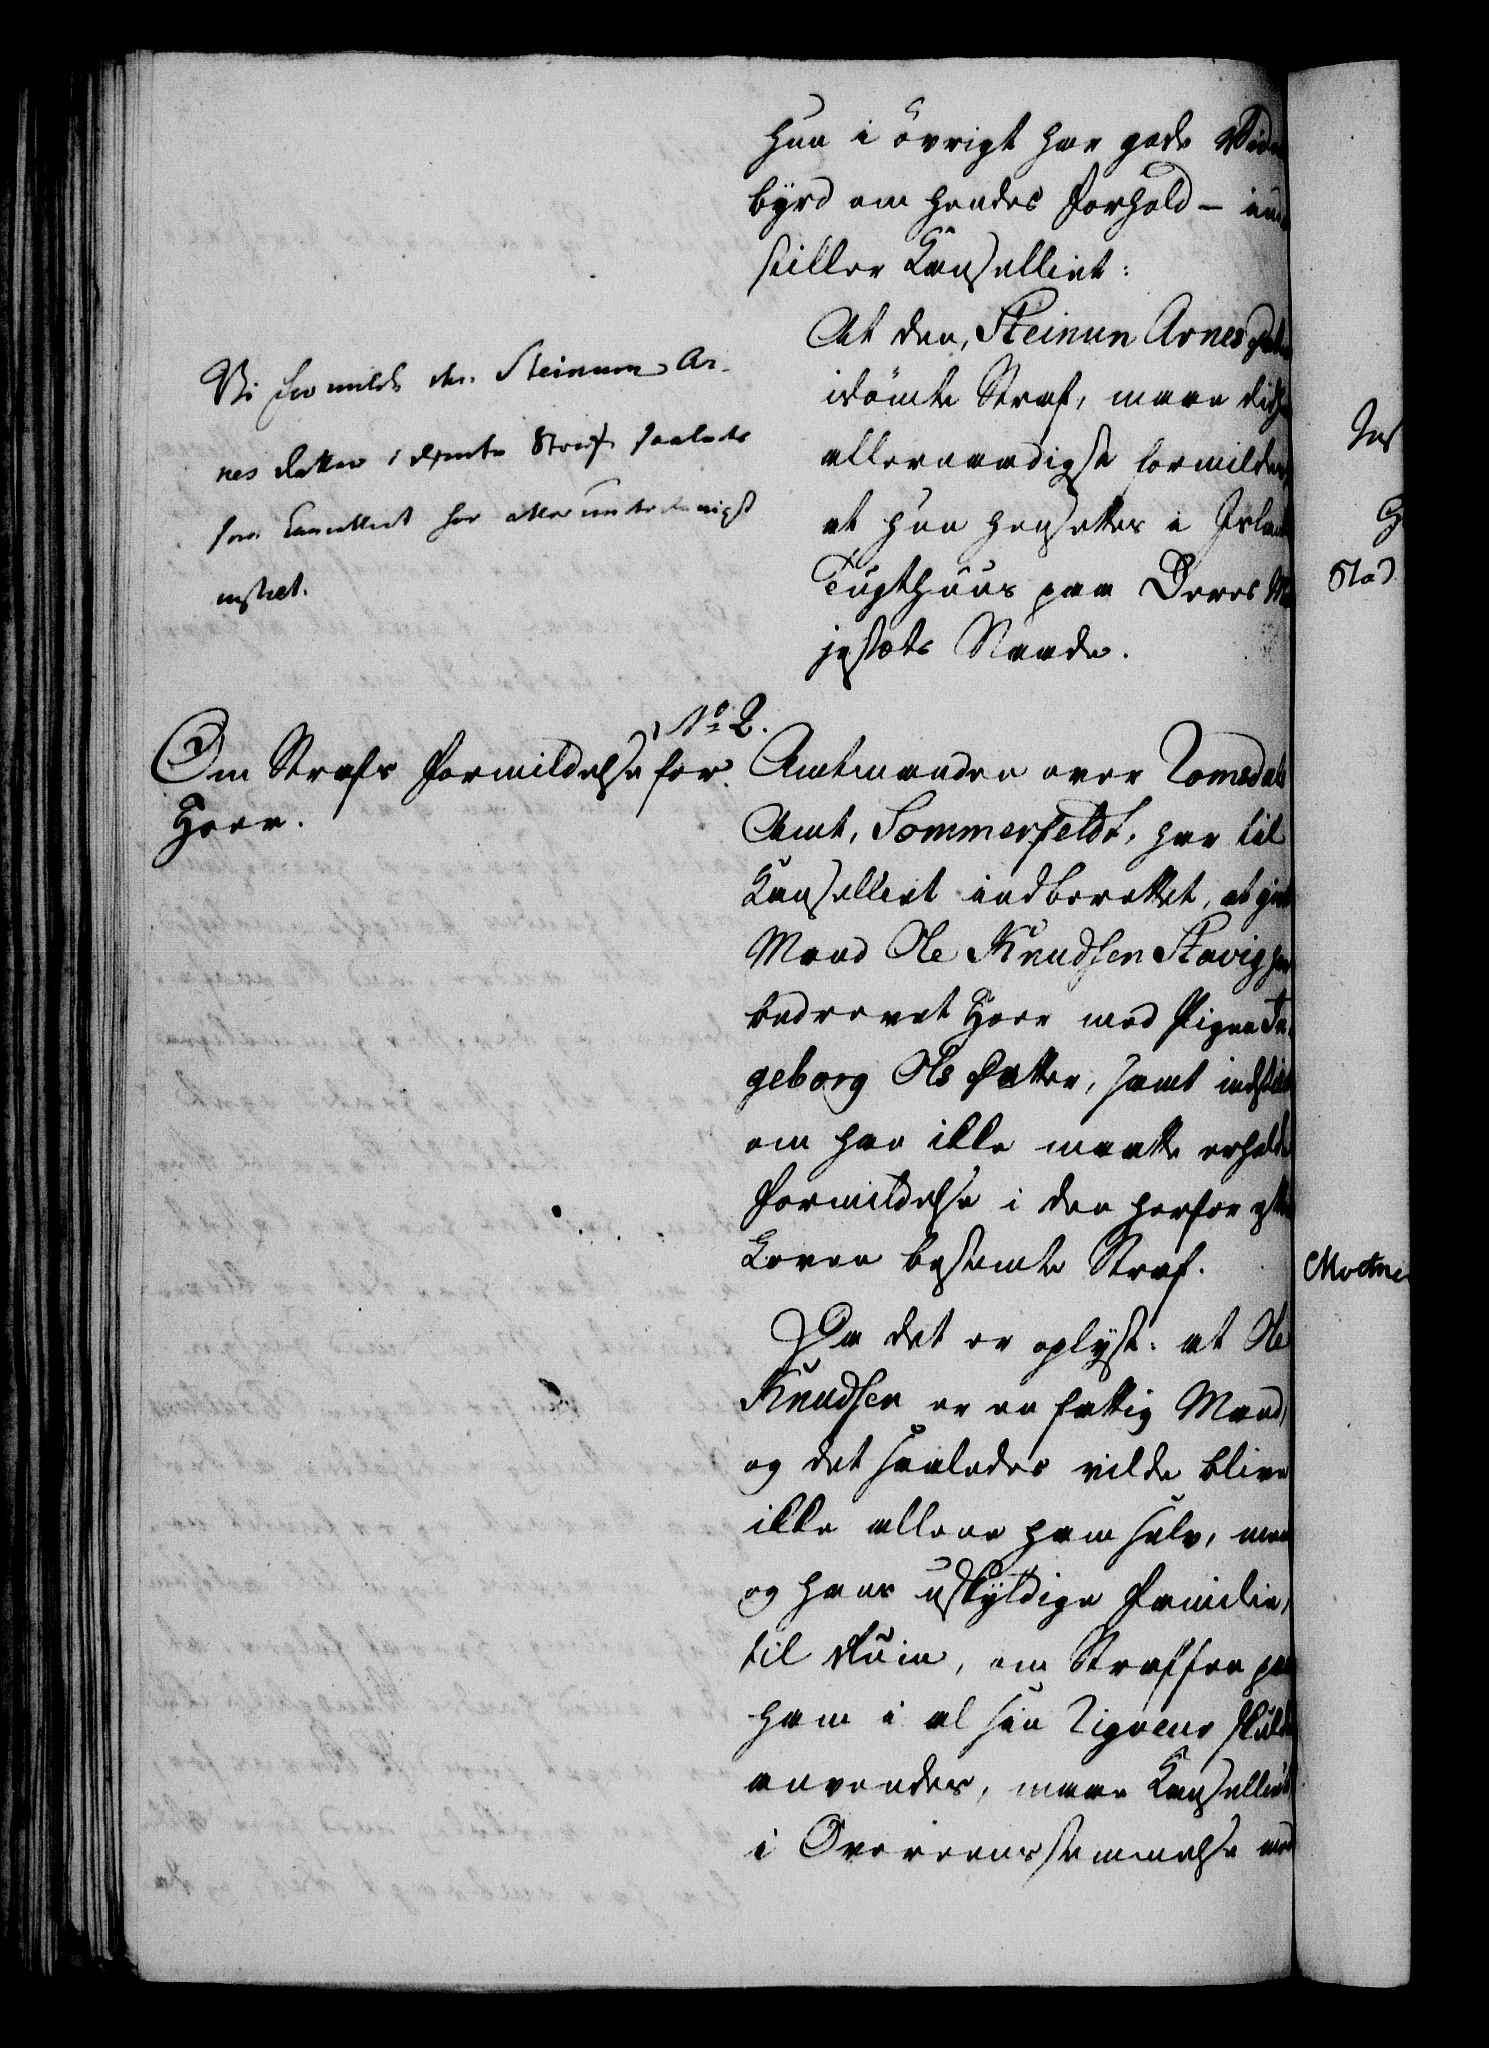 hun i övrigt har gode Vidn
byrd om hendes Forhold – ind
stiller Kanselliet:
At den, Steinun Arnesdatter
idömte Straf, maae
allernaadigst formildes,
at hun hensettes i Islands
Tugthuus paa Deres Ma
jestæts Naade.
Vi formilde den Steinun Ar-
nes datter idömte Straf saaledes
som Cancelliet har allerunderdanigst
indstilet.
No 2.
Om Strafs Formildelse for
Hoer.
Amtmanden over Romsdals
Amt, Sommerfeldt, har til
Kanselliet indberettet, at gift
Mand Ole Knudsen Stavig har
bedrevet Hoer med Pigen In-
geborg Ols Datter, samt indstillet
om han ikke maatte erholde
Formildelse i den herfor efter
Loven bestemte Straf.
Da det er oplyst: at Ole
Knudsen er en fattig Mand,
og det saaledes vilde blive
ikke allene ham selv, men
og hans uskyldige Familie,
til Ruin, om Straffen paa
ham i al sin Rigueur skulde
anvendes, maae Kanselliet
i Overeensstemmelse med
Stad